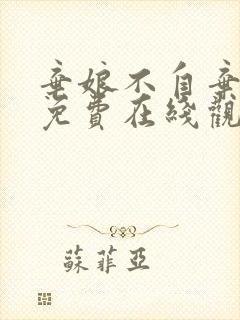 棄娘不自棄
免費在綫觀
蘇菲亞